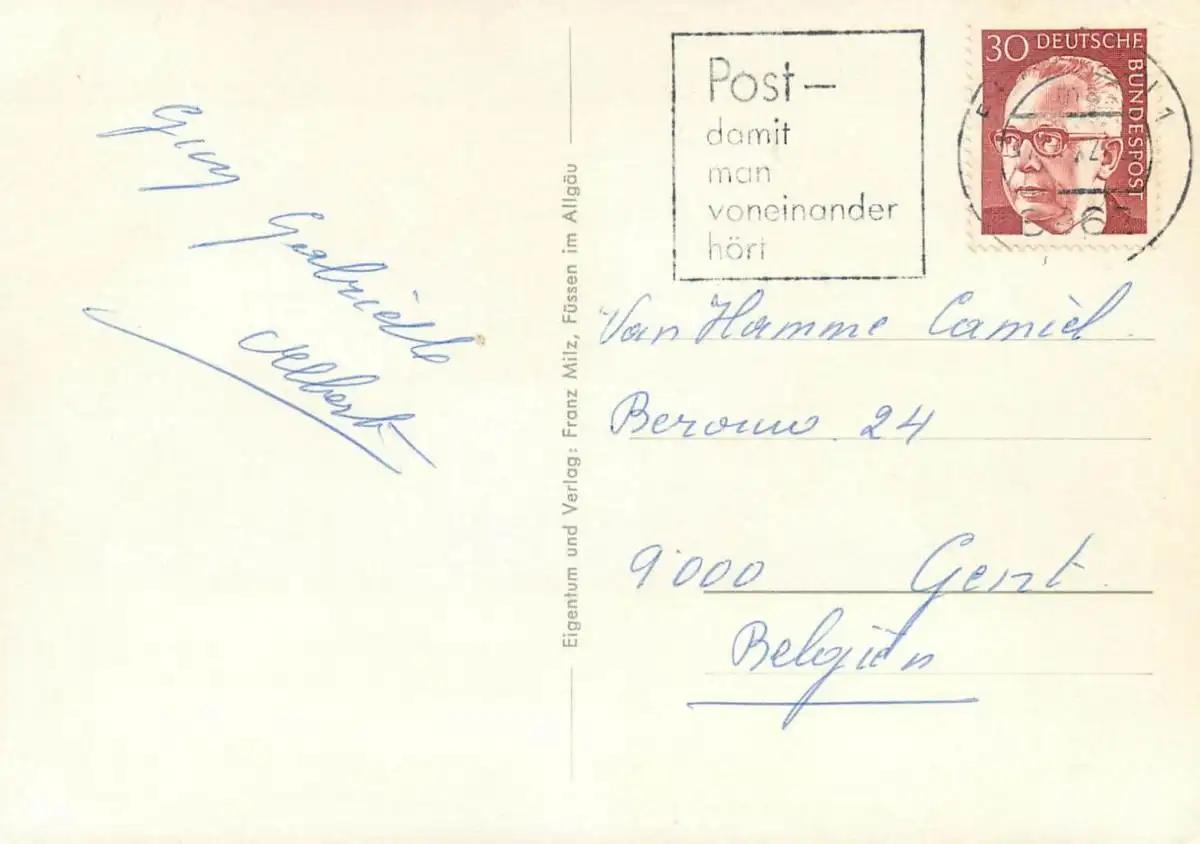 Guy
Gabriëlle
Albert
Eigentum und Verlag: Franz Milz, Füssen im Allgäu
Post –
damit
man
voneinander
hört
30 DEUTSCHE
BUNDESPOST
Van Hamme Camiel
24
9000 Gent
Belgiën